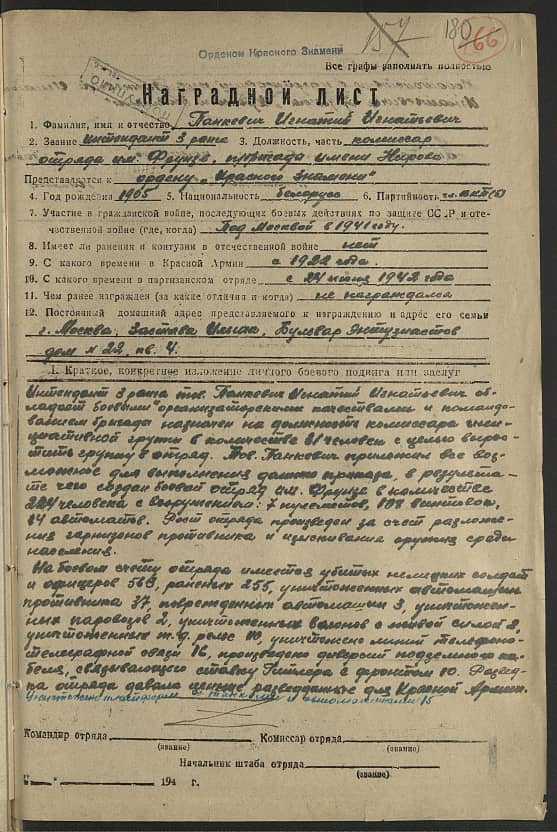 157 180 66
Орденом Красного Знамени
Все графы заполнять полностью
Наградной лист
1. Фамилия, имя и отчество Панкевич Игнатий Игнатьевич
2. Звание Интендант 3 ранга 3. Должность, часть комиссар
отряда им. Фрунзе, бригада имени Кирова
Представляется к ордену „Красного Знамени"
4. Год рождения 1905 5. Национальность белорус 6. Партийность чл. ВКП(б)
7. Участие в гражданской войне, последующих боевых действиях по защите СССР и оте-
чественной войне (где, когда) Под Москвой в 1941 году.
8. Имеет ли ранения и контузии в отечественной войне нет
9. С какого времени в Красной Армии с 1922 года.
10. С какого времени в партизанском отряде с 24 июня 1942 года
11. Чем ранее награжден (за какие отличия и когда) не награждался
12. Постоянный домашний адрес представляемого к награждению и адрес его семьи
г. Москва, Застава Ильича, Бульвар Энтузиастов
дом № 22, кв. 4.
1. Краткое, конкретное изложение личного боевого подвига или заслуг
Интендант 3 ранга тов. Панкевич Игнатий Игнатьевич об-
ладает боевыми организаторскими качествами и командо-
ванием бригады назначен на должность комиссара иници-
циативной группы в количестве 21 человек с целью вырас-
тить группу в отряд. Тов. Панкевич приложил все воз-
можное для выполнения данного приказа, в результа-
те чего создан боевой отряд им. Фрунзе в количестве
224 человека с вооружением: 7 пулеметов, 108 винтовок,
14 автоматов. Рост отряда произведен за счет разложе-
ния гарнизонов противника и изыскивания оружия среди
населения.
На боевом счету отряда имеется убитых немецких солдат
и офицеров 563, раненых 255, уничтоженных автомашин
противника 37, поврежденных автомашин 3, уничтожен-
ных паровозов 2, уничтоженных вагонов с живой силой 8,
уничтоженных ж.д. рельс 110, уничтожено линий телефоно-
телеграфной связи 16, произведено диверсий подземного ка-
беля, связывающего ставку Гитлера с фронтом 10. Развед-
ка отряда давала ценные разведданные для Красной Армии.
Уничтожено платформ с танками и автомашинами 15
Командир отряда Комиссар отряда
(звание) (звание)
Начальник штаба отряда
(звание)
„ " 194 г.